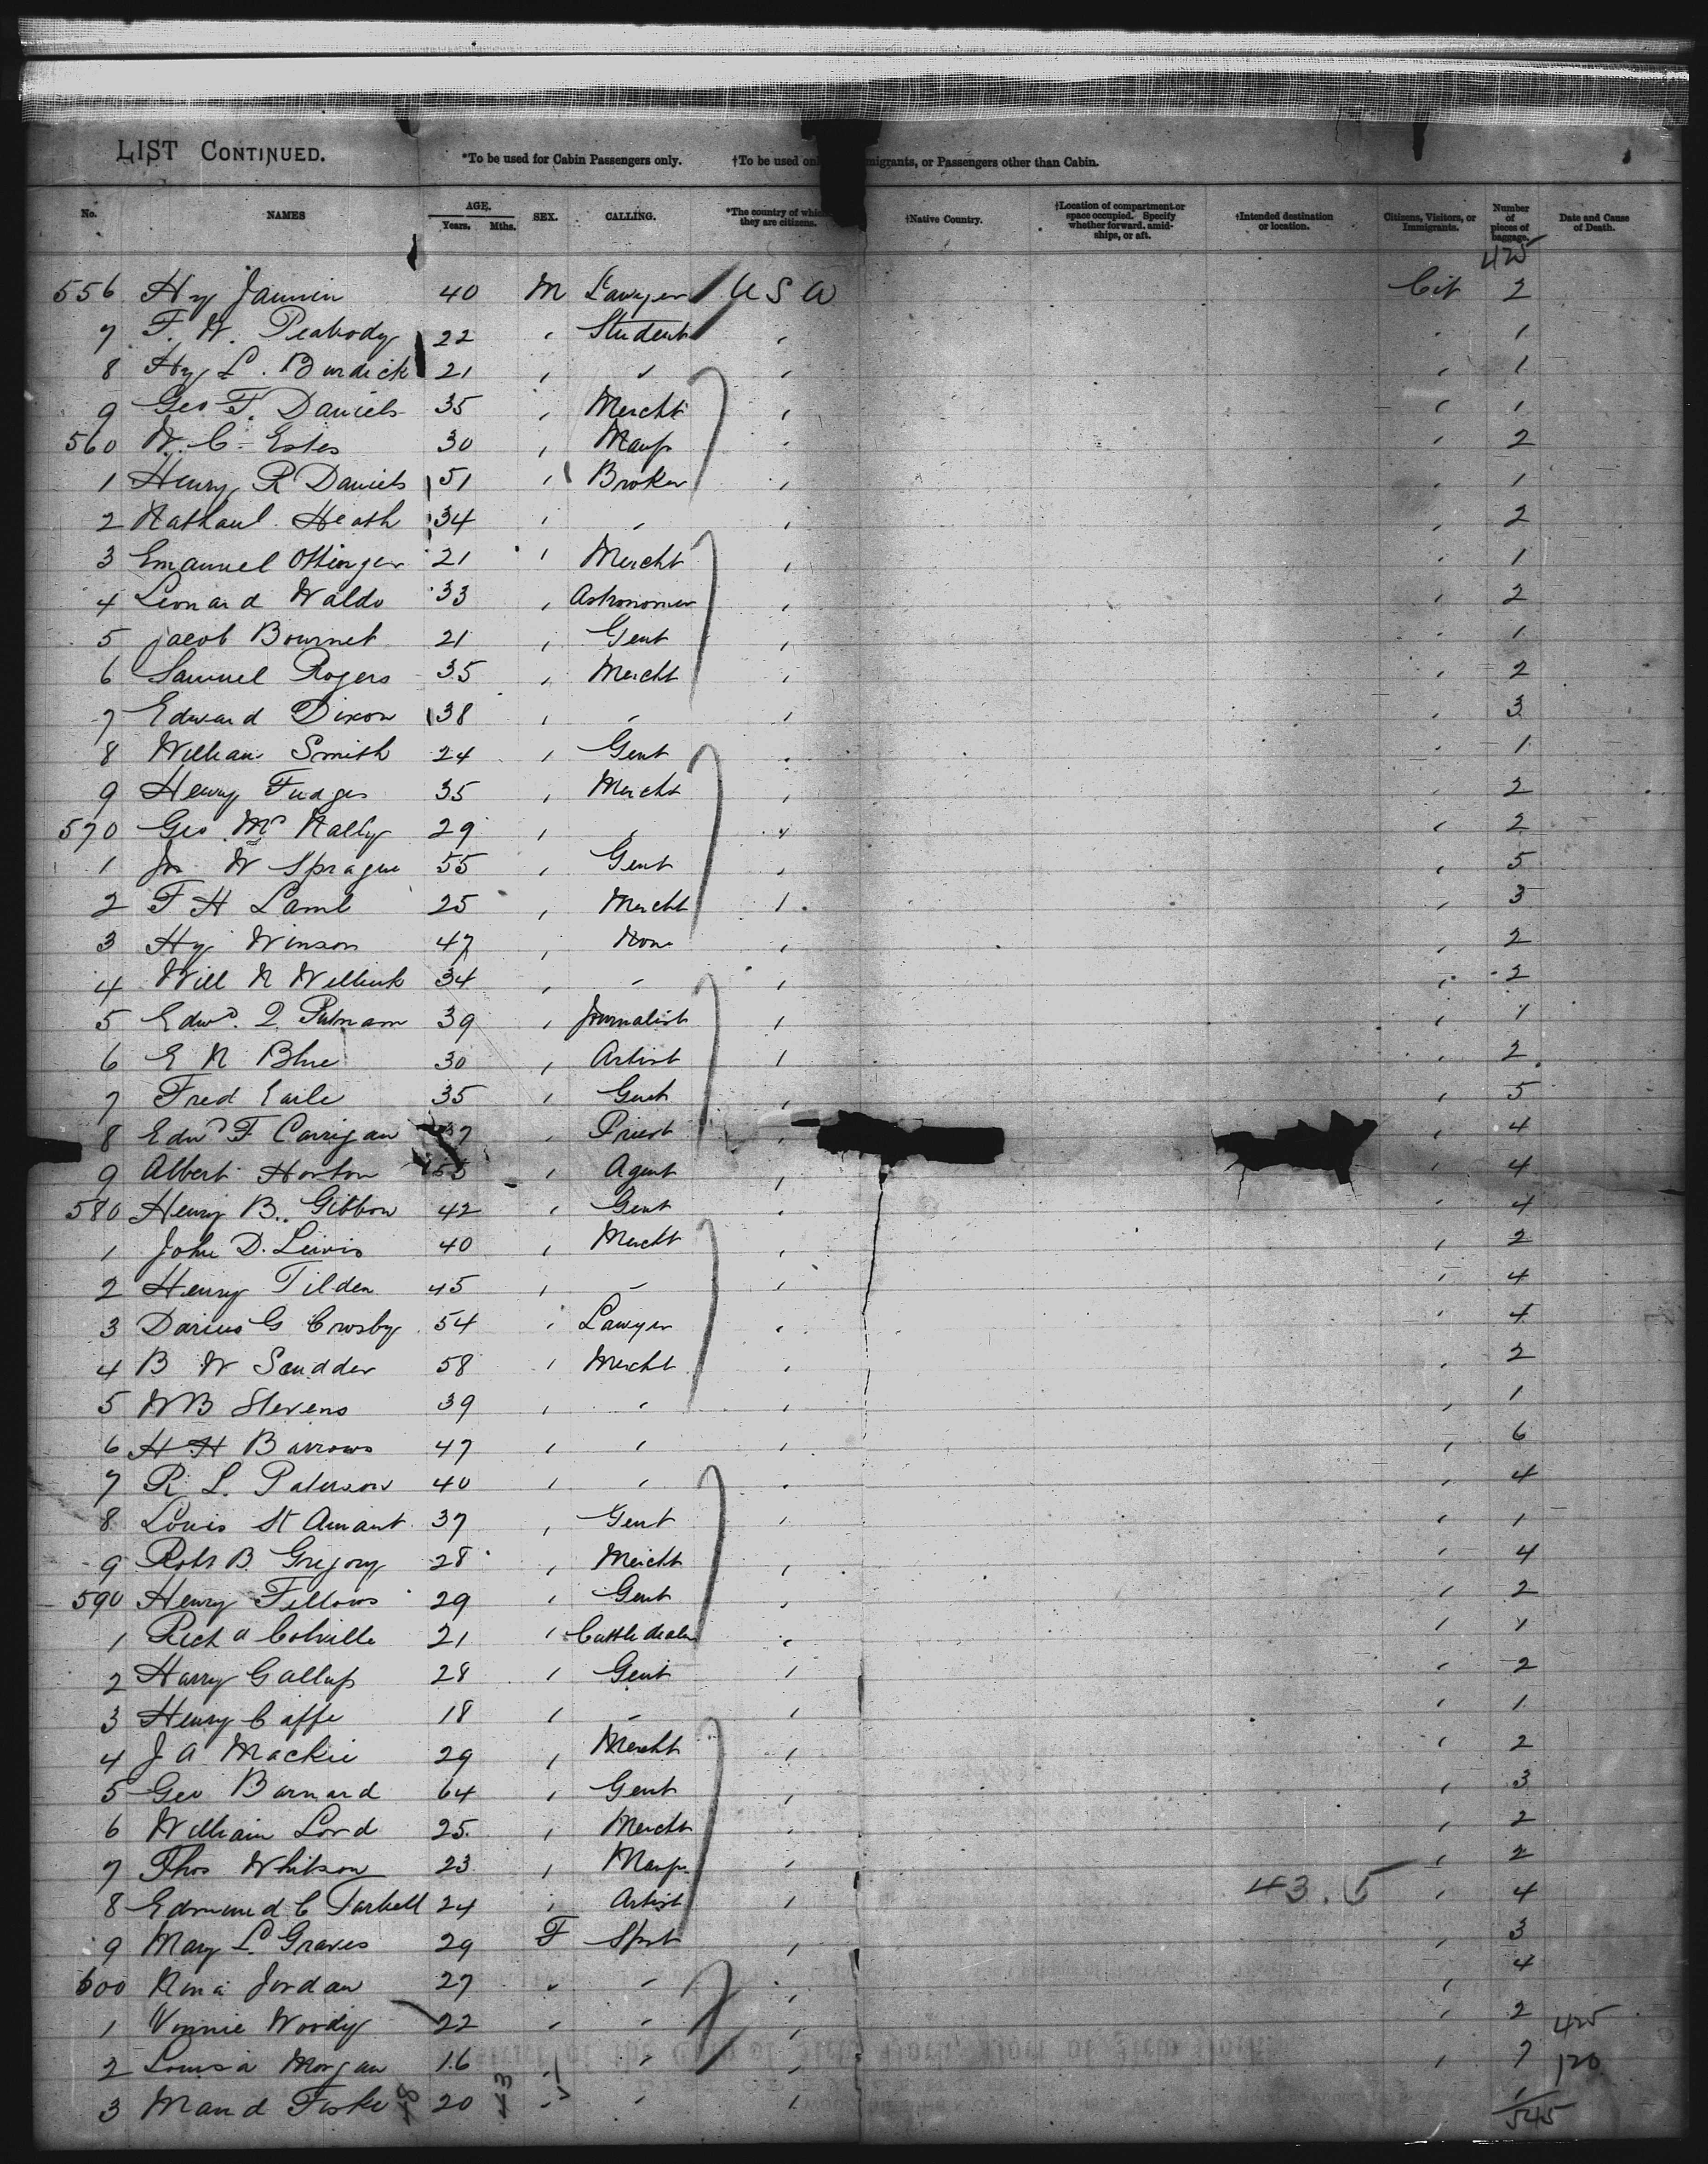 LIST CONTINUED. *To be used for Cabin Passengers only. †To be used onl migrants, or Passengers other than Cabin.
No. NAMES AGE. Years. Mths. SEX. CALLING. *The country of which they are citizens. †Native Country. †Location of compartment or space occupied. Specify whether forward, amidships, or aft. †Intended destination or location. Citizens, Visitors, or Immigrants. Number of pieces of baggage. Date and Cause of Death.
425
556 Hy 40 M Lawyer U S A Cit 2
7 F. W. Peabody 22 " Student " " 1
8 Hy L. Burdick 21 " " " " 1
9 Geo F. Daniels 35 " Mercht " " 1
560 W. C. Estes 30 " Manfr " " 2
1 Henry R Daniels 51 " Broker " " 1
2 Nathanl. Heath 34 " " " " 2
3 Emanuel Ottinger 21 " Mercht " " 1
4 Leonard Waldo 33 " Astronomer " " 2
5 Jacob Bournet 21 " Gent " " 1
6 Samuel Rogers 35 " Mercht " " 2
7 Edward Dixon 38 " " " " 3
8 William Smith 24 " Gent " " 1
9 Henry Fudges 35 " Mercht " " 2
570 Geo. Mc Nally 29 " " " " 2
1 Jn W Sprague 55 " Gent " " 5
2 F H Lamb 25 " Mercht " " 3
3 Hy Winson 47 " None " " 2
4 Will N 34 " " " " 2
5 Edwd. Q. Putnam 39 " Journalist " " 1
6 E N Blue 30 " Artist " " 2
7 Fred Earle 35 " Gent " " 5
8 Edwd F Carrigan 37 " Priest " " 4
9 Albert Horton 55 " Agent " " 4
580 Henry B. Gibbon 42 " Gent " " 4
1 John D. Lewis 40 " Mercht " " 2
2 Henry Tilden 45 " " " " 4
3 Darius G Crosby 54 " Lawyer " " 4
4 B W Scudder 58 " Mercht " " 2
5 W B Stevens 39 " " " " 1
6 H H Barrows 47 " " " " 6
7 R. L. Paterson 40 " " " " 4
8 Louis St Amant 37 " Gent " " 1
9 Robt B. Gregory 28 " Mercht " " 4
590 Henry Fellows 29 " Gent " " 2
1 Richd Colville 21 " Cattle dealer " " 1
2 Harry Gallup 28 " Gent " " 2
3 Henry Caffe 18 " " " " 1
4 J A Mackie 29 " Mercht " " 2
5 Geo Barnard 64 " Gent " " 3
6 William Lord 25 " Mercht " " 2
7 Thos Whitson 23 " Manfr " " 2
43.5
8 Edmund C Tarbell 24 " Artist " " 4
9 Mary L. Graves 29 F Spst " " 3
600 Nona Jordan 27 " " " " 4
1 Vinnie Woody 22 " " " " 2
425
2 Louisa Morgan 16 " " " " 7
120
3 Maud Fiske 20 " " "
545